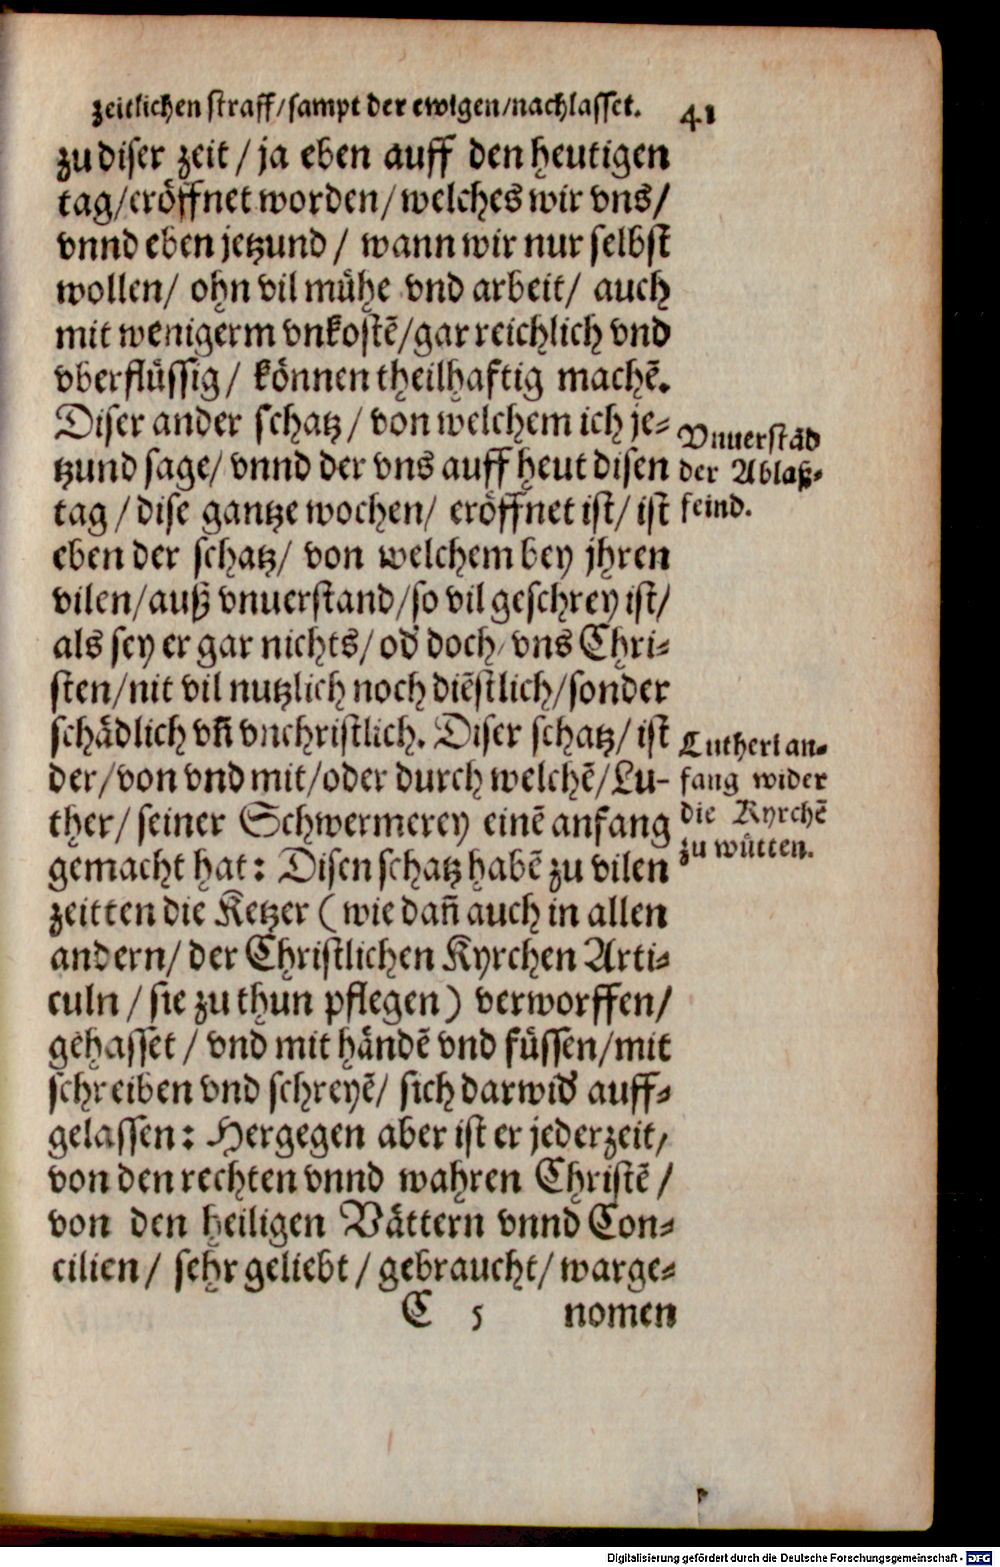 zeitlichen straff/sampt der ewigen/nachlasset. 41
zu diser zeit / ja eben auff den heutigen
tag/eröffnet worden/welches wir vns/
vnnd eben jetzund / wann wir nur selbst
wollen/ ohn vil mühe vnd arbeit/ auch
mit wenigerm vnkostẽ/gar reichlich vnd
vberflüssig/ können theilhafftig machẽ.
Diser ander schatz/ von welchem ich je⸗
tzund sage/ vnnd der vns auff heut disen
tag / dise gantze wochen/ eröffnet ist/ ist
eben der schatz/ von welchem bey jhren
vilen/auß vnuerstand/so vil geschrey ist/
als sey er gar nichts/ od' doch/ vns Chri⸗
sten/nit vil nutzlich noch diẽstlich/sonder
schädlich vñ vnchristlich. Diser schatz/ ist
der/von vnd mit/oder durch welchẽ/Lu-
ther/ seiner Schwermerey einẽ anfang
gemacht hat: Disen schatz habẽ zu vilen
zeitten die Ketzer (wie dañ auch in allen
andern/ der Christlichen Kyrchen Arti⸗
culn / sie zu thun pflegen) verworffen/
gehasset / vnd mit händẽ vnd füssen/mit
schreiben vnd schreyẽ/ sich darwid' auff⸗
gelassen: Hergegen aber ist er jederzeit/
von den rechten vnnd wahren Christẽ /
von den heiligen Vättern vnnd Con⸗
cilien/ sehr geliebt / gebraucht/ warge⸗
C 5 nomen
Vnuerstãd
der Ablaß⸗
feind.
Lutheri an⸗
fang wider
die Kyrchẽ
zu wütten.
Digitalisierung gefördert durch die Deutsche Forschungsgemeinschaft - DFG